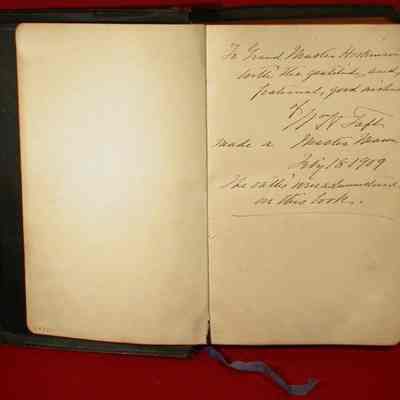 To Grand Master Hoskinson
with the gratitude and
fraternal, good wishes
of
Wm H Taft
made a Master Mason
Feby 18 1909
The oaths were administered
on this book.